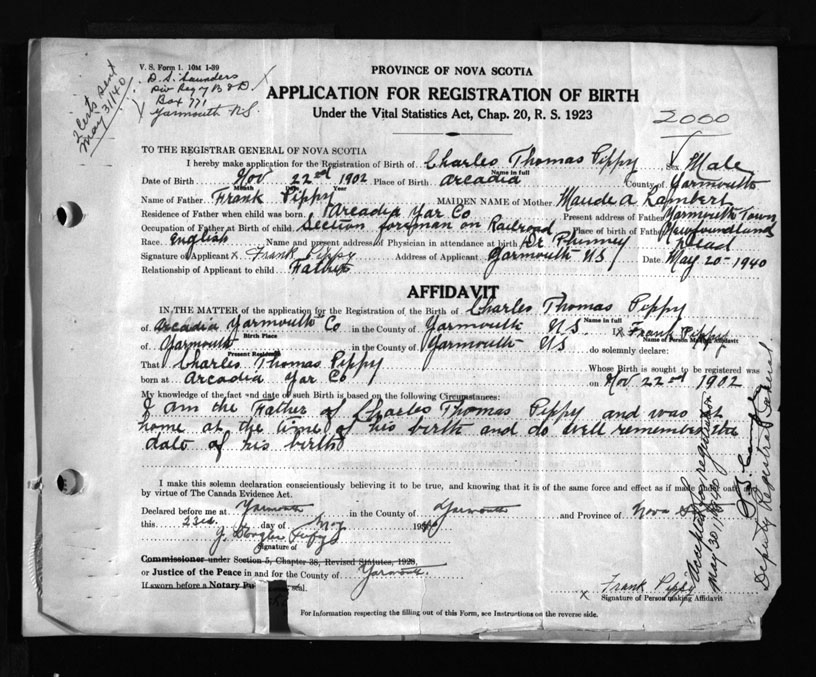 V. S. Form 1. 10M 1-39
D. S. Saunders
Div Reg of B & D.
Box 771
Yarmouth N.S.
2 Certs sent
May 31/40
PROVINCE OF NOVA SCOTIA
APPLICATION FOR REGISTRATION OF BIRTH
Under the Vital Statistics Act, Chap. 20, R. S. 1923
2000
TO THE REGISTRAR GENERAL OF NOVA SCOTIA
I hereby make application for the Registration of Birth of Charles Thomas Pippy Sex Male
Name in full
Date of Birth Nov 22nd 1902 Place of Birth Arcadia County of Yarmouth
Month Date Year
Name of Father Frank Pippy MAIDEN NAME of Mother Maude A Lambert
Residence of Father when child was born Arcadia Yar Co Present address of Father Yarmouth Town
Occupation of Father at Birth of child Section foreman on Railroad Place of birth of Father Newfoundland
Race English Name and present address of Physician in attendance at birth Dr Phinney dead
Signature of Applicant x Frank Pippy Address of Applicant Yarmouth NS Date May 20-1940
Relationship of Applicant to child Father
AFFIDAVIT
IN THE MATTER of the application for the Registration of the Birth of Charles Thomas Pippy
Name in full
of Arcadia Yarmouth Co in the County of Yarmouth NS I, Frank Pippy
Birth Place Name of Person Making Affidavit
of Yarmouth in the County of Yarmouth NS do solemnly declare:
Present Residence
That Charles Thomas Pippy Whose Birth is sought to be registered was
born at Arcadia Yar Co on Nov 22nd 1902
My knowledge of the fact and date of such Birth is based on the following Circumstances:
I am the Father of Charles Thomas Pippy and was at
home at the time of his birth and do well remember the
date of his birth
I make this solemn declaration conscientiously believing it to be true, and knowing that it is of the same force and effect as if made under oath and
by virtue of The Canada Evidence Act.
Declared before me at Yarmouth in the County of Yarmouth and Province of Nova S
this 23rd day of May 1940
J. Douglas
Signature of
Commissioner under Section 5, Chapter 38, Revised Statutes, 1923,
or Justice of the Peace in and for the County of Yarmouth
If sworn before a Notary Pu seal.
x Frank Pippy
Signature of Person making Affidavit
For Information respecting the filling out of this Form, see Instructions on the reverse side.
Accepted for registration
May 30, 1940
Deputy Registrar General